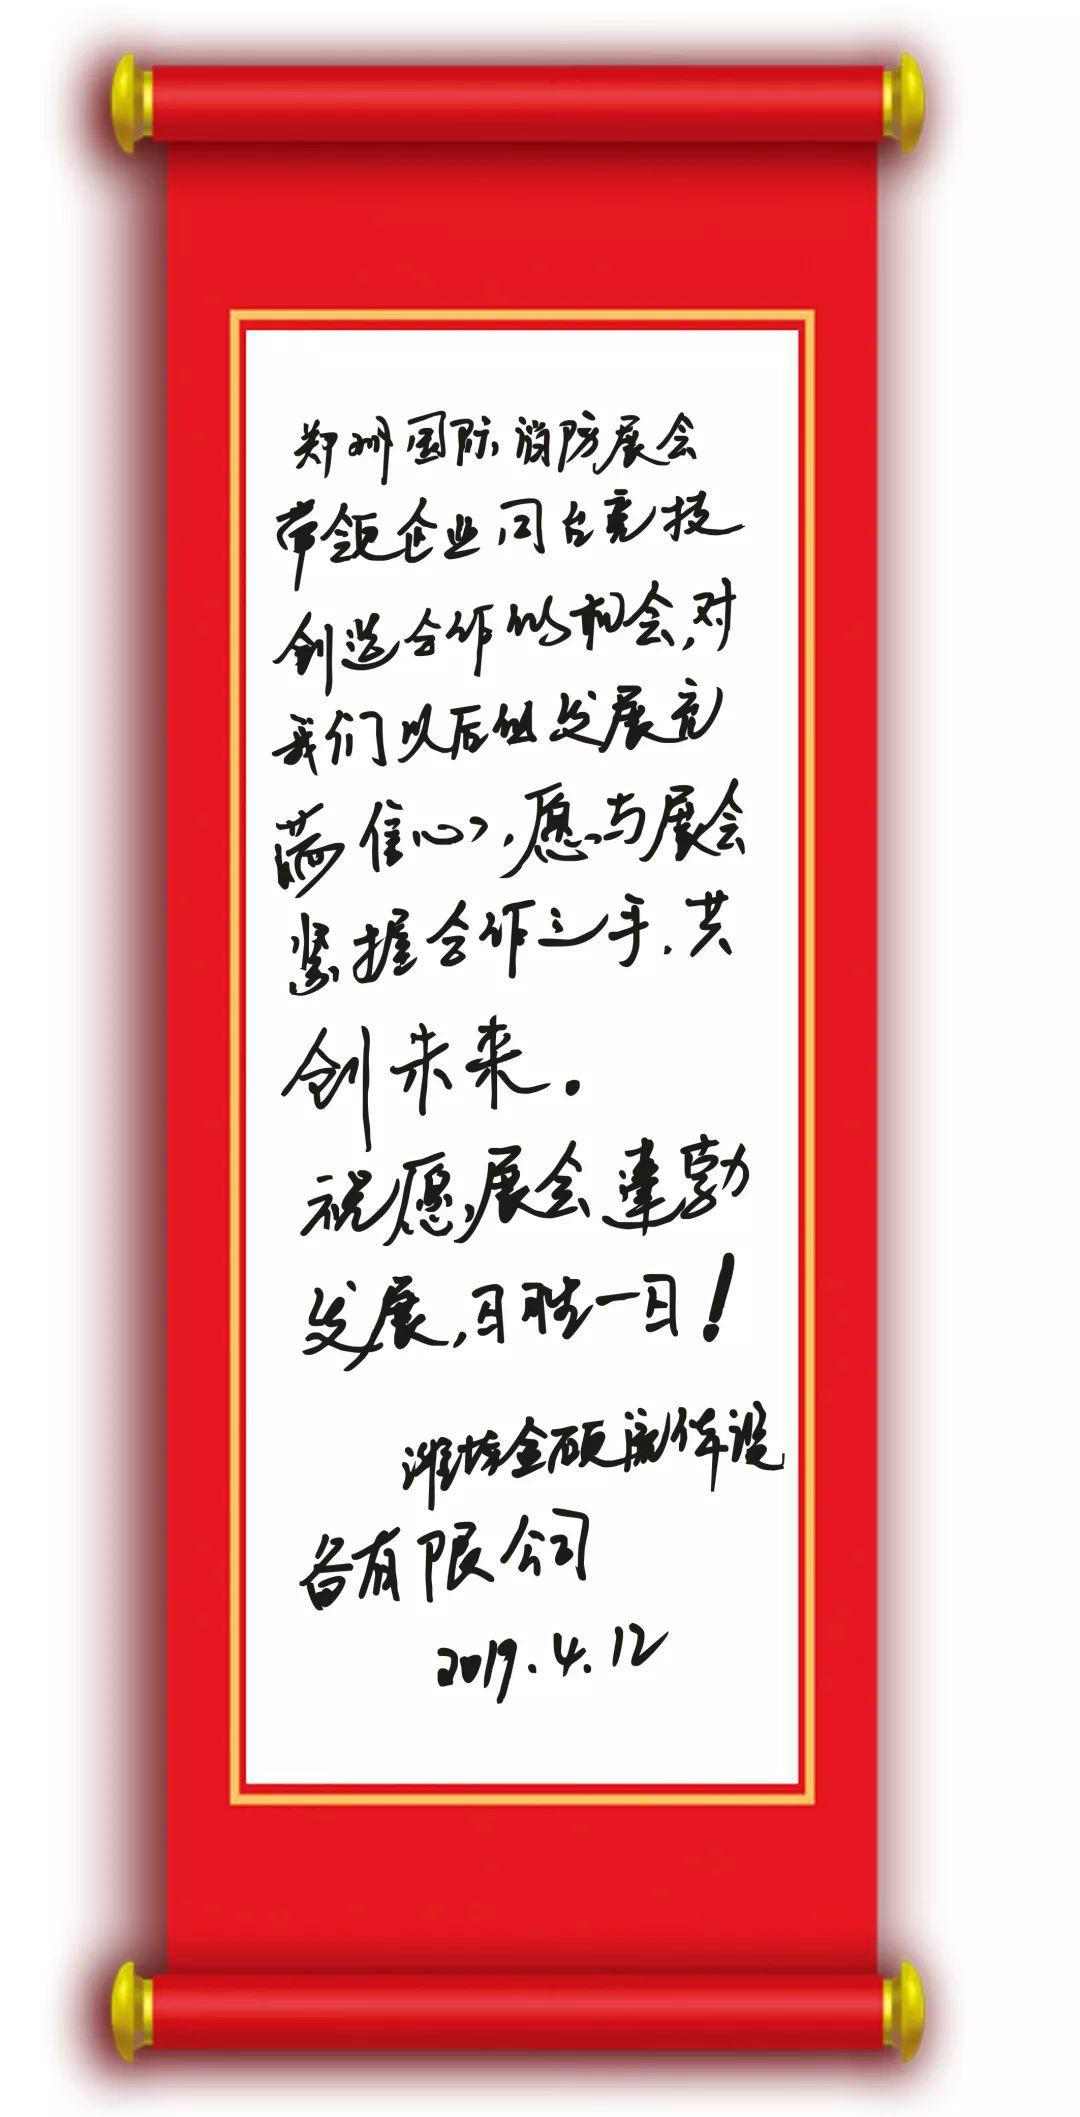 郑州国际消防展会
带领企业同台竞技
创造合作的机会,对
我们以后的发展充
满信心,愿与展会
紧握合作之手,共
创未来.
祝愿展会蓬勃
发展,日胜一日!
潍坊金硕流体设
备有限公司
2019.4.12